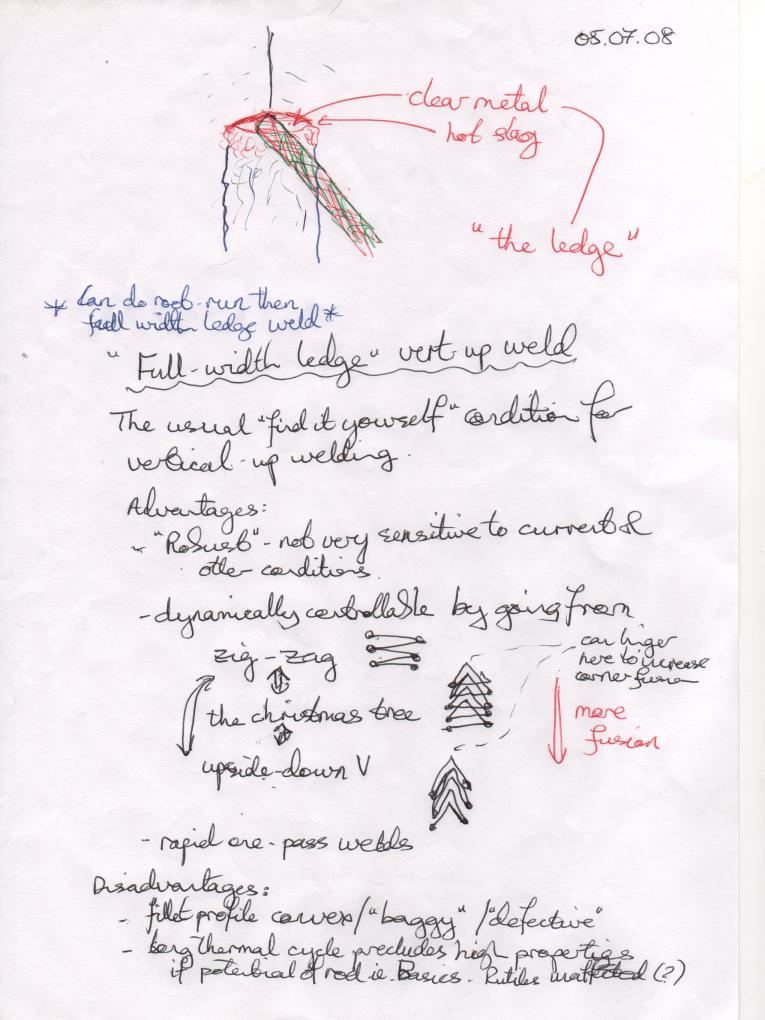 05.07.08
clear metal
hot slag
"the ledge"
* Can do root-run then
full width ledge weld *
"Full-width ledge" vert-up weld
The usual "find it yourself" condition for
vertical-up welding.
Advantages:
- "Robust" - not very sensitive to current &
other conditions.
- dynamically controllable by going from
zig-zag
can linger
here to increase
corner fusion
the christmas tree
more
fusion
upside-down V
- rapid one-pass welds
Disadvantages:
- fillet profile convex/"baggy"/"defective"
- long thermal cycle precludes high properties
if potential of rod ie. Basics. Rutiles (?)